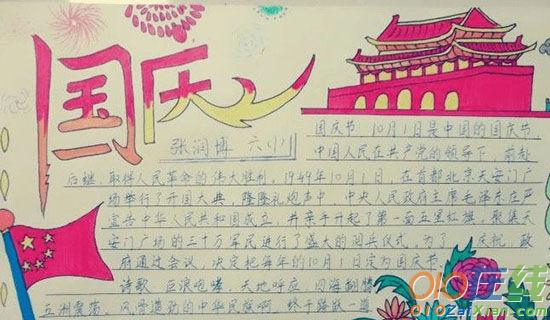 国庆
张润博 六(1)
国庆节 10月1日是中国的国庆节,
中国人民在共产党的领导下,前赴
后继,取得人民革命的伟大胜利,1949年10月1日,在首都北京天安门广
场举行了开国大典,隆隆礼炮声中,中央人民政府主席毛泽东庄严
宣告中华人民共和国成立,并亲手升起了第一面五星红旗,聚集天
安门广场的三十万军民进行了盛大的阅兵仪式,为了 庆祝,政
府通过会议,决定把每年的10月1日定为国庆节
诗歌 巨浪咆哮,天地呼应 四海翻腾
五洲震荡,风雷激励的中华民族啊 终于踏
在线
ZaiXian.com